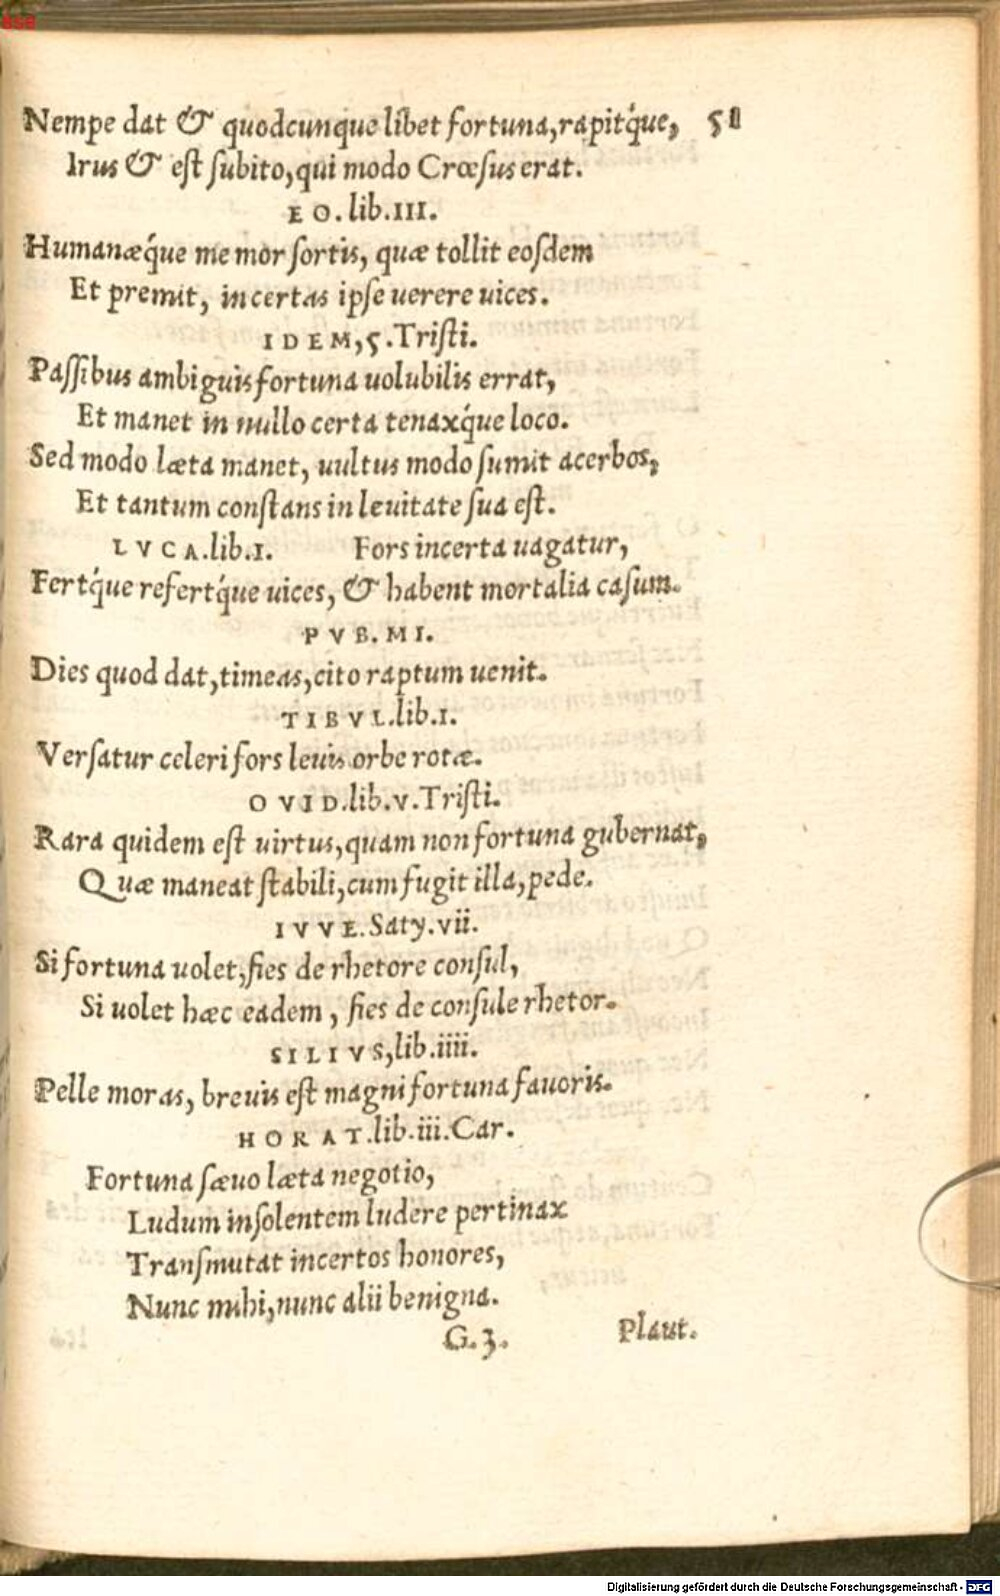 Nempe dat & quodcunque libet fortuna, rapitq́ue, 51
Irus & est subito, qui modo Crœsus erat.
EO. lib. III.
Humanæq́ue memor sortis, quæ tollit eosdem
Et premit, incertas ipse uerere uices.
IDEM, 5. Tristi.
Passibus ambiguis fortuna uolubilis errat,
Et manet in nullo certa tenaxq́ue loco.
Sed modo læta manet, uultus modo sumit acerbos,
Et tantum constans in leuitate sua est.
LVCA. lib. I. Fors incerta uagatur,
Fertq́ue refertq́ue uices, & habent mortalia casum.
PVB. MI.
Dies quod dat, timeas, cito raptum uenit.
TIBVL. lib. I.
Versatur celeri fors leuis orbe rotæ.
OVID. lib. v. Tristi.
Rara quidem est uirtus, quam non fortuna gubernat,
Quæ maneat stabili, cum fugit illa, pede.
IVVE. Saty. vii.
Si fortuna uolet, fies de rhetore consul,
Si uolet hæc eadem, fies de consule rhetor.
SILIVS, lib. iiii.
Pelle moras, breuis est magni fortuna fauoris.
HORAT. lib. iii. Car.
Fortuna sæuo læta negotio,
Ludum insolentem ludere pertinax
Transmutat incertos honores,
Nunc mihi, nunc alii benigna.
G. 3. Plaut.
Digitalisierung gefördert durch die Deutsche Forschungsgemeinschaft - DFG